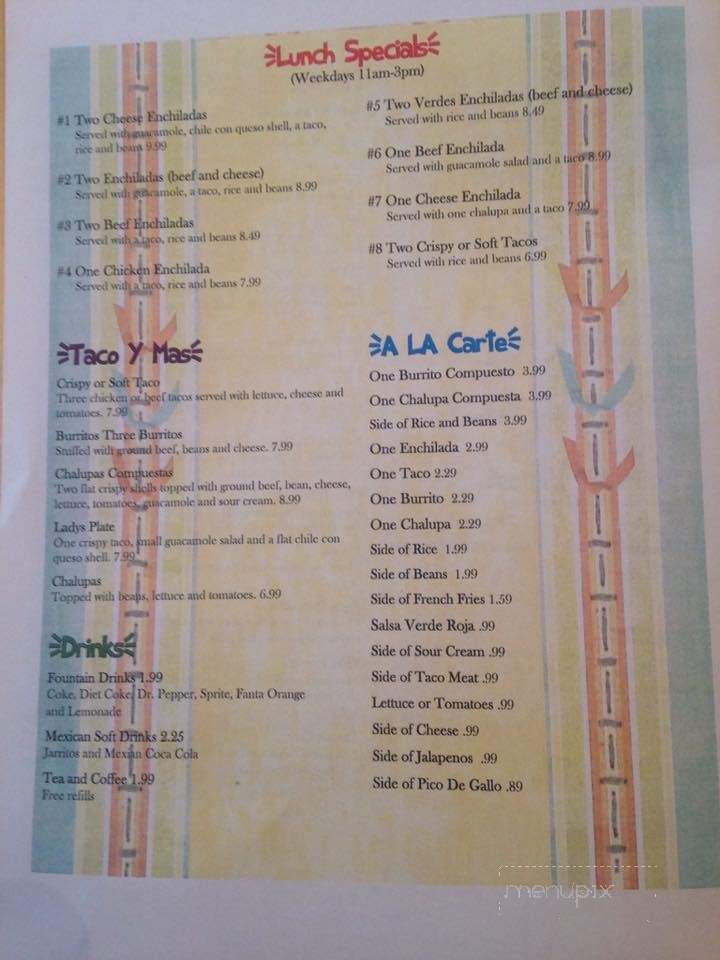 Lunch Specials
(Weekdays 11am-3pm)
#1 Two Cheese Enchiladas
Served with guacamole, chile con queso shell, a taco,
rice and beans 9.99
#2 Two Enchiladas (beef and cheese)
Served with guacamole, a taco, rice and beans 8.99
#3 Two Beef Enchiladas
Served with a taco, rice and beans 8.49
#4 One Chicken Enchilada
Served with a taco, rice and beans 7.99
#5 Two Verdes Enchiladas (beef and cheese)
Served with rice and beans 8.49
#6 One Beef Enchilada
Served with guacamole salad and a taco 8.99
#7 One Cheese Enchilada
Served with one chalupa and a taco 7.99
#8 Two Crispy or Soft Tacos
Served with rice and beans 6.99
Taco Y Mas
Crispy or Soft Taco
Three chicken or beef tacos served with lettuce, cheese and
tomatoes. 7.99
Burritos Three Burritos
Stuffed with ground beef, beans and cheese. 7.99
Chalupas Compuestas
Two flat crispy shells topped with ground beef, bean, cheese,
lettuce, tomatoes, guacamole and sour cream. 8.99
Ladys Plate
One crispy taco, small guacamole salad and a flat chile con
queso shell. 7.99
Chalupas
Topped with beans, lettuce and tomatoes. 6.99
Drinks
Fountain Drinks 1.99
Coke, Diet Coke, Dr. Pepper, Sprite, Fanta Orange
and Lemonade
Mexican Soft Drinks 2.25
Jarritos and Mexian Coca Cola
Tea and Coffee 1.99
Free refills
A LA Carte
One Burrito Compuesto 3.99
One Chalupa Compuesta 3.99
Side of Rice and Beans 3.99
One Enchilada 2.99
One Taco 2.29
One Burrito 2.29
One Chalupa 2.29
Side of Rice 1.99
Side of Beans 1.99
Side of French Fries 1.59
Salsa Verde Roja .99
Side of Sour Cream .99
Side of Taco Meat .99
Lettuce or Tomatoes .99
Side of Cheese .99
Side of Jalapenos .99
Side of Pico De Gallo .89
menupix